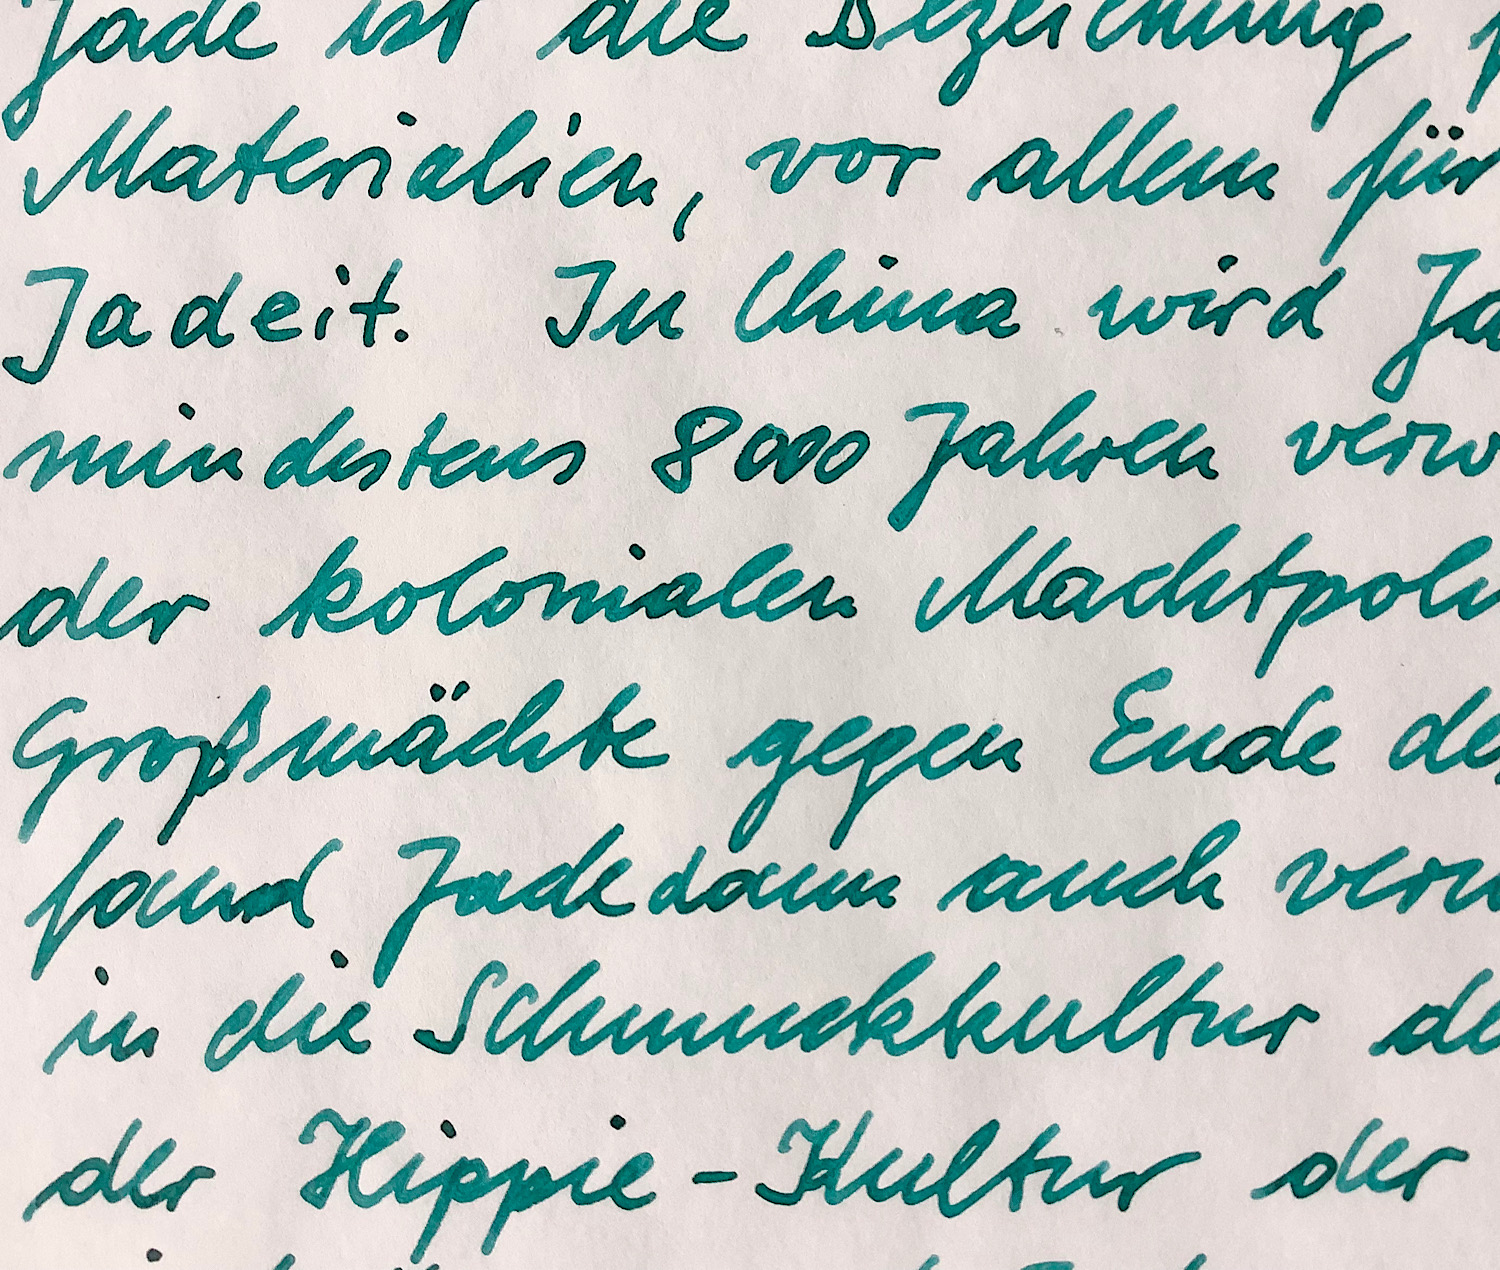 Jade ist die Bezeichnung f
Materialien, vor allem für
Jadeit. In China wird Ja
mindestens 8000 Jahren verw
der kolonialen Machtpoli
Großmächte gegen Ende de
fand Jade dann auch verm
in die Schmuckkultur de
der Hippie-Kultur der